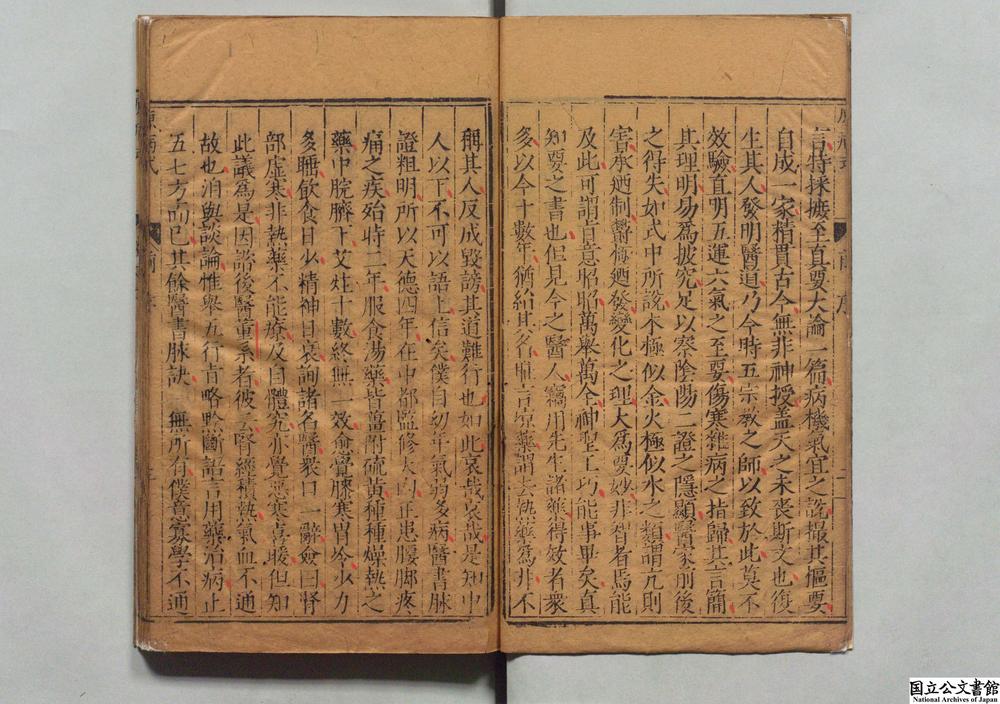 言特採摭至真要大論一篇病機氣宜之說撮其樞要
自成一家精貫古今無非神授盖天之未喪斯文也復
生其人發明醫道乃今時五宗教之師以致於此莫不
效驗直明五運六氣之至要傷寒雜病之指歸其言簡
其理明易爲披究足以察陰陽二證之隱顯醫家前後
之得失如式中所說木極似金火極似水之類謂亢則
害承迺制鬱極迺發變化之理大爲要妙非智者焉能
及此可謂旨意昭昭萬舉萬全神聖工巧能事畢矣真
知要之書也但見今之醫人竊用先生諸藥得效者衆
多以今十數年猶紿其名麻言凉藥謂去熱藥爲非不
稱其人反成毀謗其道難行也如此哀哉哀哉是知中
人以下不可以語上信矣僕自幼年氣弱多病醫書脉
證粗明所以天德四年在中都監修大內正患腰脚疼
痛之疾殆時二年服食湯藥皆薑附硫黄種種燥熱之
藥中脘臍下艾炷十數終無一效愈覺膝寒胃冷少力
多睡飲食日少精神日衰詢諸名醫衆口一辭僉曰腎
部虛寒非熱藥不能療及自體究亦覺惡寒喜暖但知
此議爲是因詣後醫董系者彼云腎經積熱氣血不通
故也洎與談論惟舉五行旨略㸃斷語言用藥治病止
五七方而已其餘醫書脉訣 無所有僕意寡學不通
原病式
序
国立公文書館
National Archives of Japan